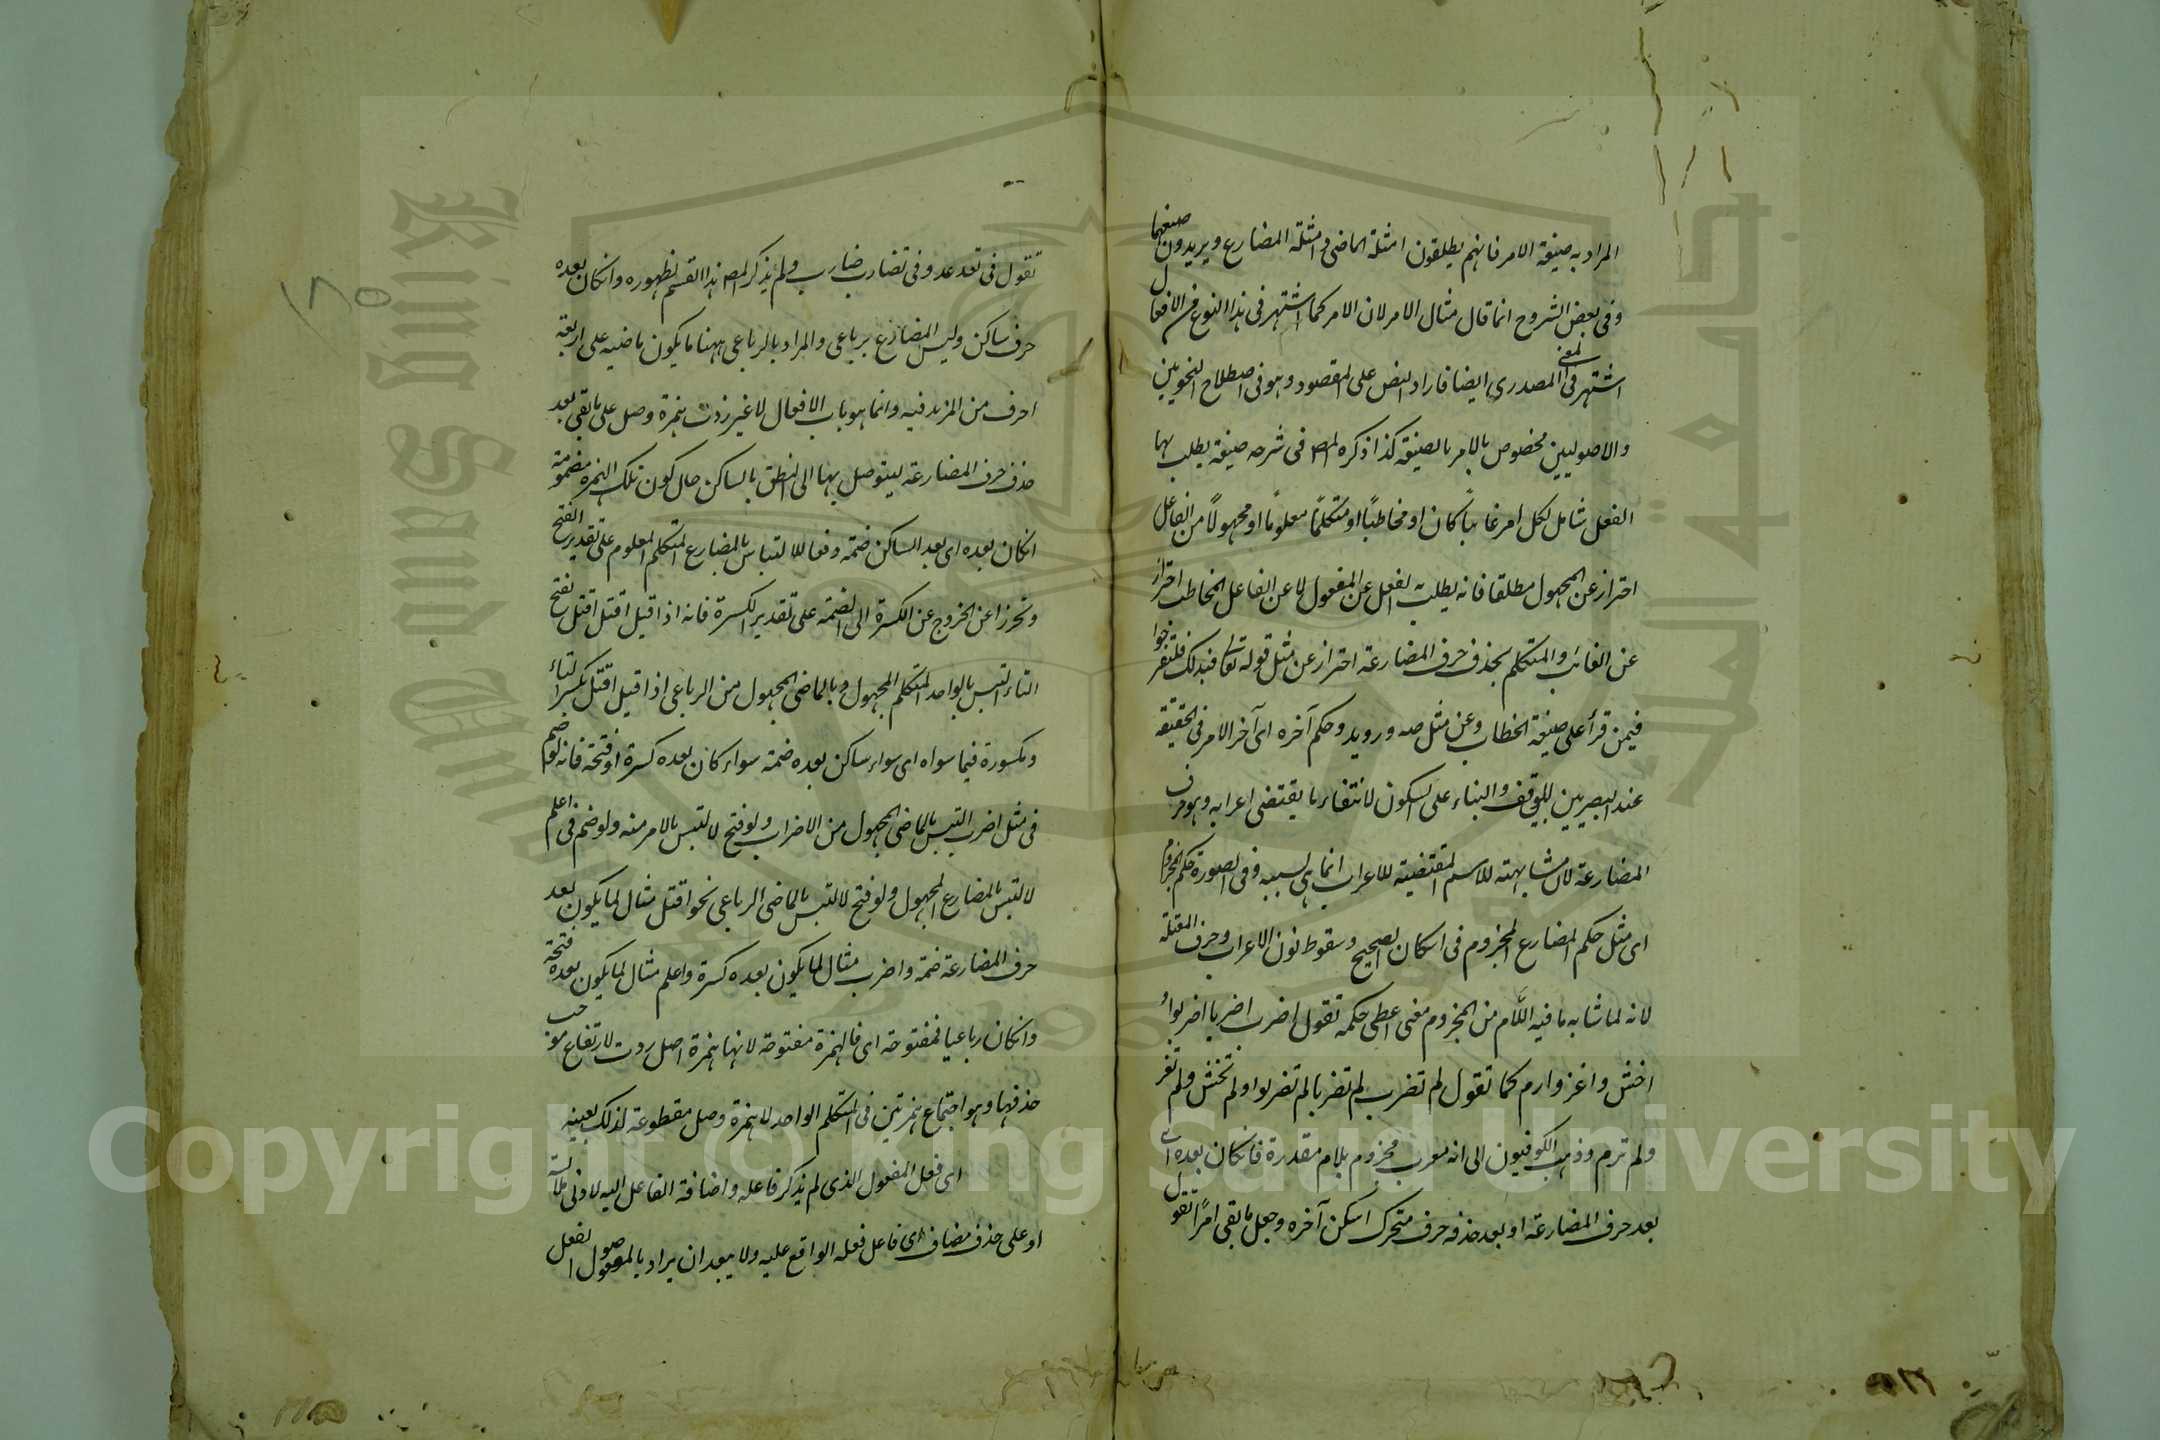 المراد به صيغة الامر فانهم يطلقون امثلة الماضى و امثلة المضارع ويريدون صيغهما
وفى بعض الشروح انما قال مثال الامر لان الامر كما اشتهر فى هذا النوع من الافعال
اشتهر فى المعنى المصدرى ايضا فاراد النص على المقصود وهو فى اصطلاح النحويين
والاصوليين مخصوص بالامر بالصيغة كذا ذكره المص فى شرحه صيغة يطلب بها
الفعل شامل لكل امر غائباً كان او مخاطباً او متكلماً معلوماً او مجهولاً من الفاعل
احتراز عن المجهول مطلقا فانه يطلب الفعل عن المفعول لا عن الفاعل المخاطب احتراز
عن الغائب والمتكلم بحذف حرف المضارعة احتراز عن مثل قوله تعالى فبذلك فلتفرحوا
فيمن قرأ على صيغة الخطاب وعن مثل صه و رويد وحكم آخره اى آخر الامر فى الحقيقة
عند البصريين للوقف والبناء على السكون لانتفاء ما يقتضى اعرابه وهو حرف
المضارعة لان مشابهته للاسم المقتضية للاعراب انما هى بسببه وفى الصورة حكم المجزوم
اى مثل حكم المضارع المجزوم فى اسكان الصحيح وسقوط نون الاعراب وحرف العلة
لانه لما شابه ما فيه اللام من المجزوم معنى اعطى حكمه تقول اضرب اضربا اضربوا و
اخش واغز وارم كما تقول لم تضرب لم تضربا لم تضربوا ولم تخش ولم تغز
ولم ترم وذهب الكوفيون الى انه معرب مجزوم بلام مقدرة فان كان بعده اى
بعد حرف المضارعة او بعد حذفه حرف متحرك اسكن آخره وجعل ما بقى امراً تقول
تقول فى تعد عد وفى تضارب ضارب ولم يذكر المص هذا القسم لظهوره وان كان بعده
حرف ساكن وليس المضارع برباعى والمراد بالرباعى ههنا ما يكون ماضيه على اربعة
احرف من المزيد فيه وانما هو باب الافعال لا غير زدت همزة وصل على ما بقى بعد
حذف حرف المضارعة ليتوصل بها الى النطق بالساكن حال كون تلك الهمزة مضمومة
ان كان بعده اى بعد الساكن ضمة دفعا للالتباس بالمضارع المتكلم المعلوم على تقدير الفتح
وتحرزا عن الخروج عن الكسرة الى الضمة على تقدير الكسرة فانه اذا قيل اقتل اقتل بفتح
التاء التبس بالواحد المتكلم المجهول وبالماضى المجهول من الرباعى اذا قيل اقتل بكسر التاء
ومكسورة فيما سواه اى سواء ساكن بعده ضمة سواء كان بعده كسرة او فتحة فانه لو ضم
فى مثل اضرب التبس بالماضى المجهول من الاضراب ولو فتح لالتبس بالامر منه ولو ضم فى اعلم
لالتبس بالمضارع المجهول ولو فتح لالتبس بالماضى الرباعى نحو اقتل مثال لما يكون بعد
حرف المضارعة ضمة واضرب مثال لما يكون بعده كسرة واعلم مثال لما يكون بعده فتحة
وان كان رباعيا فمفتوحة اى فالهمزة مفتوحة لانها همزة اصل ردت لارتفاع موجب
حذفها وهو اجتماع همزتين فى المتكلم الواحد لا همزة وصل مقطوعة لذلك بعينه
اى فعل المفعول الذى لم يذكر فاعله واضافة الفاعل اليه لادنى ملابسة
او على حذف مضاف اى فاعل فعله الواقع عليه ولا يبعد ان يراد بالموصول الفعل
Copyright © King Saud University